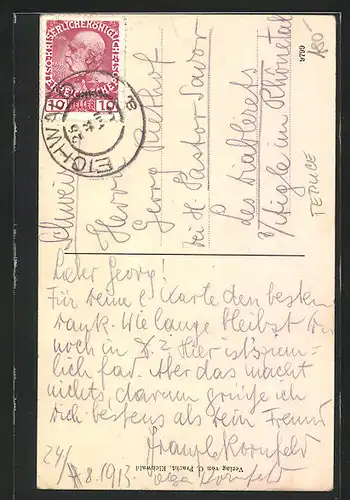 KAISERLICHE KÖNIGLICHE
10 HELLER 10
EICHWALD
180-
9799
Schweiz
Herrn
Georg
bei H. Pastor
Les Diablerets
Aigle im Rhônetal
TEPLICE
Lieber Georg!
Für deine l. Karte den besten
Dank. Wie lange bleibst Du
noch in D.? Hier ist's ziem-
lich fad. Aber das macht
nichts, darum grüße ich
dich bestens als dein Freund
Franz Kornfeld
24/ 8. 1913. Kornfeld
Verlag von C. Pracht, Eichwald